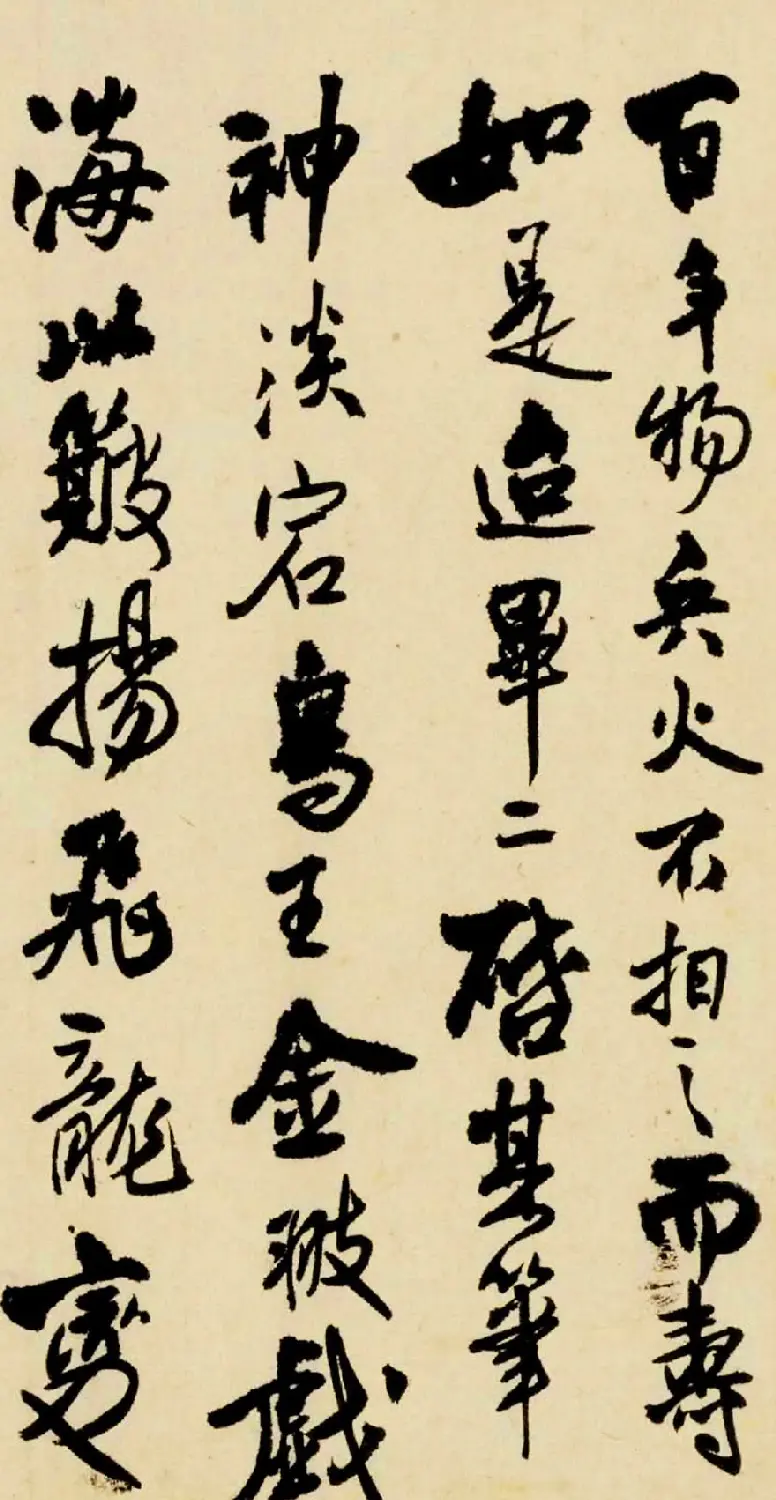 百年物兵火不之而壽
如是迨畢二啓其筆
神淡宕鳥王金翄戲
海以簸揚飛龍變